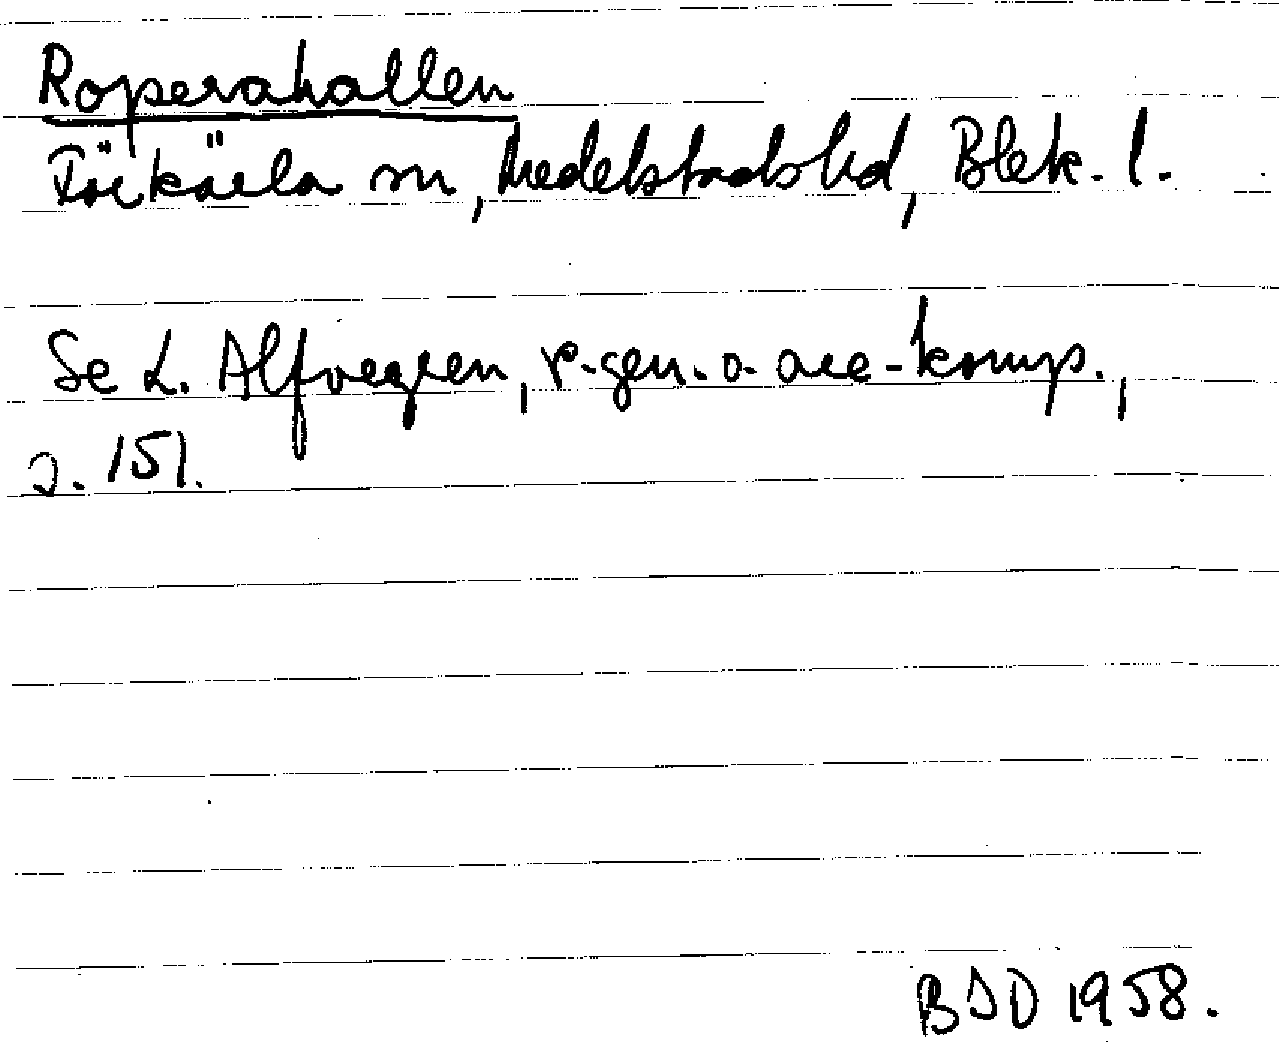 Roperahallen
Förkärla sn, Medelstads hd, Blek. l.
Se L. Alfvegren, r-gen. o. are-komp.,
s. 151.
BSD 1958.